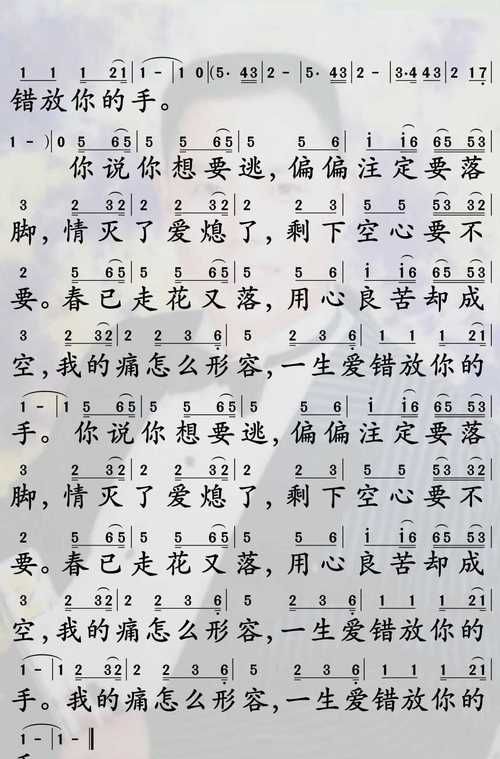 1 1 1 21 | 1 - | 1 0 |(5· 43 | 2 - | 5· 43 | 2 - | 3·4 43 | 2 17
错放你的手。
1 - )| 0 5 65 | 5 5 65 | 5 5 6 | 5 i i6 | 65 53
你说你想要逃,偏偏注定要落
3 2 32 | 2 2 32 | 2 2 3 | 5 5 53 32
脚,情灭了爱熄了,剩下空心要不
2 5 65 | 5 5 65 | 5 5 6 | 5 i i6 | 65 53
要。春已走花又落,用心良苦却成
3 2 32 | 2 2 3 6 | 5 2 3 6 | 1 1 1 21
空,我的痛怎么形容,一生爱错放你的
1 - | 1 5 65 | 5 5 65 | 5 5 6 | 5 i i6 | 65 53
手。你说你想要逃,偏偏注定要落
3 2 32 | 2 2 32 | 2 2 3 | 5 5 53 32
脚,情灭了爱熄了,剩下空心要不
2 5 65 | 5 5 65 | 5 5 6 | 5 i i6 | 65 53
要。春已走花又落,用心良苦却成
3 2 32 | 2 2 3 6 | 5 2 3 6 | 1 1 1 21
空,我的痛怎么形容,一生爱错放你的
1 - | 1 2 32 | 2 2 3 6 | 5 2 3 6 | 1 1 1 21
手。我的痛怎么形容,一生爱错放你的
1 - | 1 - ‖